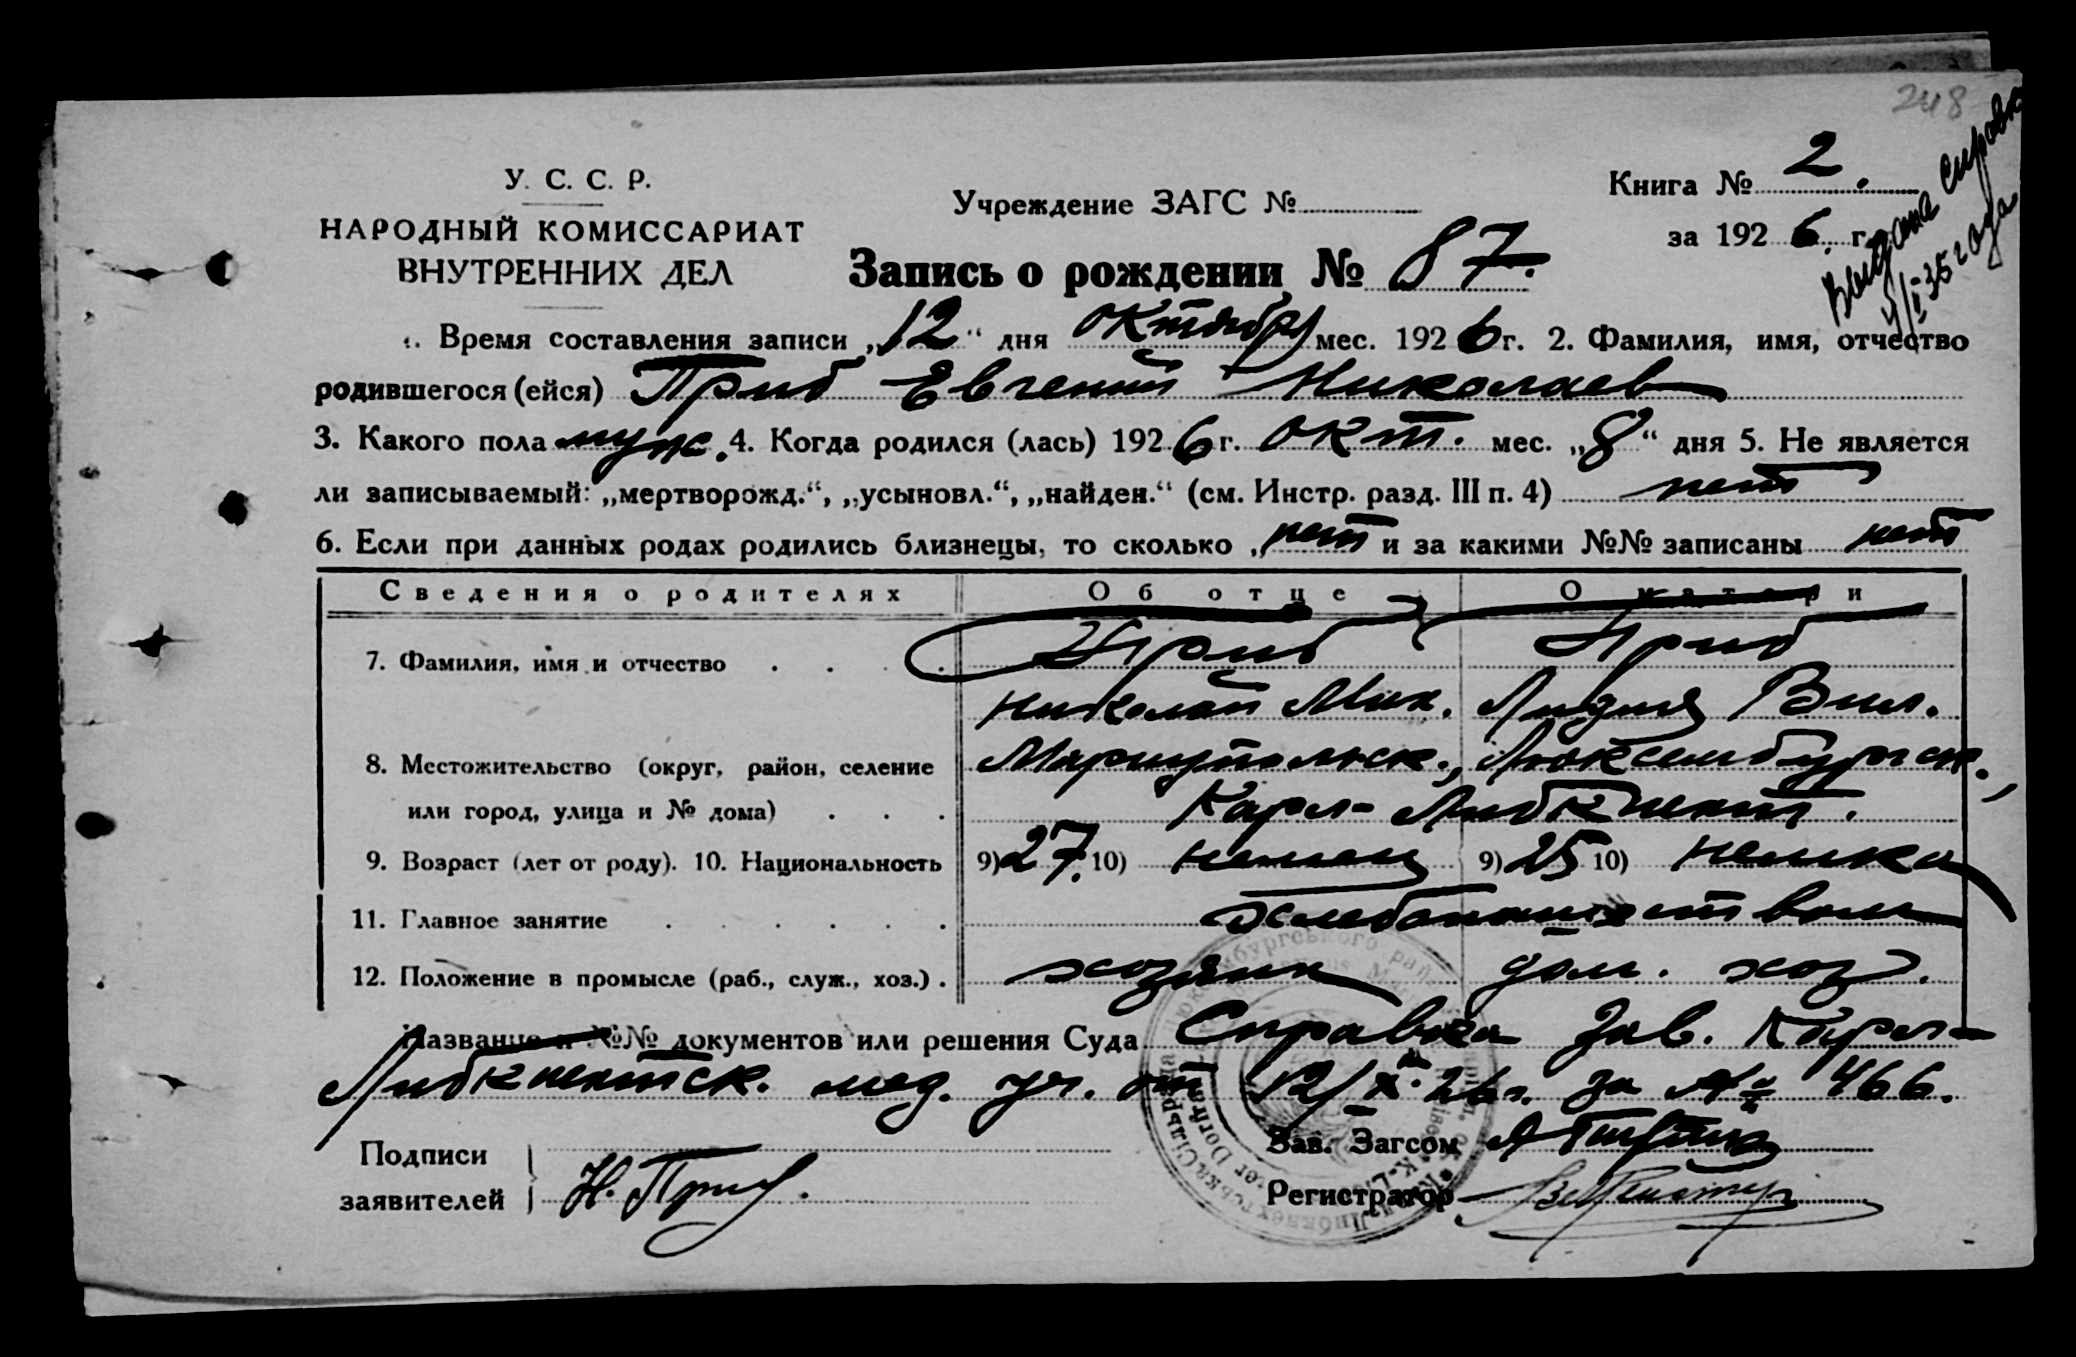 248
У. С. С. Р.
НАРОДНЫЙ КОМИССАРИАТ
ВНУТРЕННИХ ДЕЛ
Учреждение ЗАГС №
Книга № 2.
за 1926 г.
Выдана справка
4/I 35 года
Запись о рождении № 87.
1. Время составления записи „12“ дня октября мес. 1926 г. 2. Фамилия, имя, отчество
родившегося (ейся) Приб Евгений Николаев
3. Какого пола муж. 4. Когда родился (лась) 1926 г. окт. мес. „8“ дня 5. Не является
ли записываемый: „мертворожд.“, „усыновл.“, „найден.“ (см. Инстр. разд. III п. 4) нет
6. Если при данных родах родились близнецы, то сколько нет и за какими №№ записаны нет
Сведения о родителях Об отце О матери
7. Фамилия, имя и отчество Приб Приб
Николай Мих. Лидия Вил.
8. Местожительство (округ, район, селение Мариупольск., Люксембургск.,
или город, улица и № дома) Карл-Либкнехт.
9. Возраст (лет от роду). 10. Национальность 9) 27. 10) немец 9) 25 10) немка
11. Главное занятие хлебопашеством
12. Положение в промысле (раб., служ., хоз.) хозяин дом. хоз.
Название и №№ документов или решения Суда Справка Зав. Карл-
Либкнехтск. мед. уч. от 12/X.26г. за № 466.
Подписи
заявителей Н. Приб.
Зав. Загсом
Регистратор